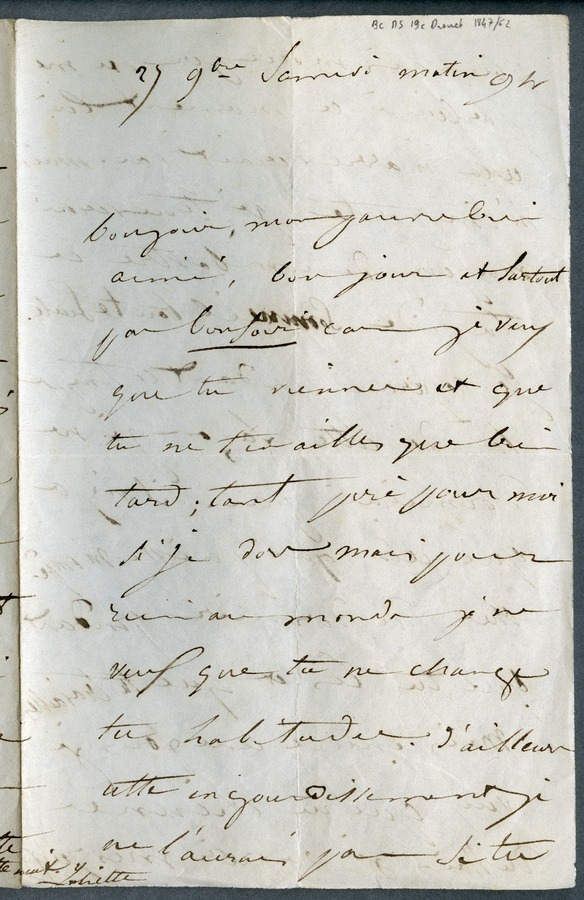 Bc MS 19c Drouet 1847/62
27 9bre Samedi matin 9h
Bonjour, mon pauvre bien
aimé, bonjour et surtout
pas bonsoir car je veux
que tu viennes et que
tu ne travailles que bien
tard ; tant pis pour moi
si je dors mais pour
rien au monde je ne
veux que tu ne change
tes habitudes. D'ailleurs
cette engourdissement je
ne l'aurai pas si tu
Juliette